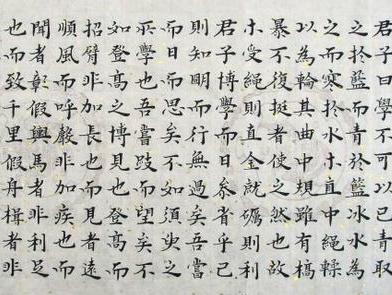 君子曰學不可以已青取
之於藍而青於藍冰水為
之而寒於水木直中繩輮
以為輪其曲中規雖有槁
暴不復挺者使之然也故
木受繩則直金就礪則利
君子博學而日參省乎己
則知明而行無過矣吾嘗
而日而思矣不如須臾之
所學也吾嘗跂而望矣不
如登高之博見也登高而
招臂非加長也而見者遠
順風而呼聲非加疾也而
聞者彰假輿馬者非利足
也而致千里假舟楫者非